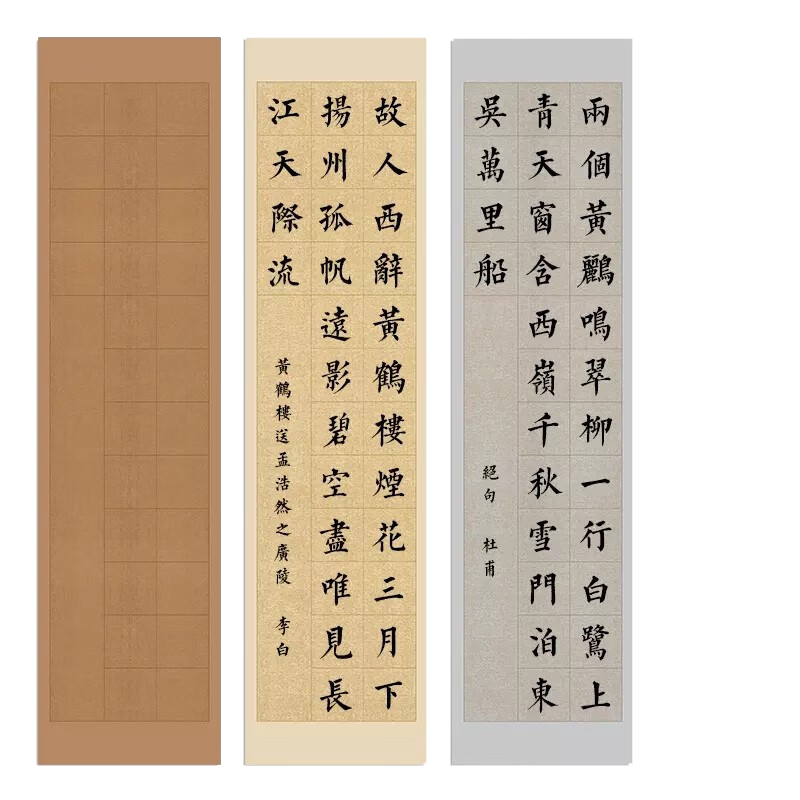 兩個黃鸝鳴翠柳一行白鷺上
青天窗含西嶺千秋雪門泊東
吳萬里船
絕句 杜甫
故人西辭黃鶴樓煙花三月下
揚州孤帆遠影碧空盡唯見長
江天際流
黃鶴樓送孟浩然之廣陵 李白